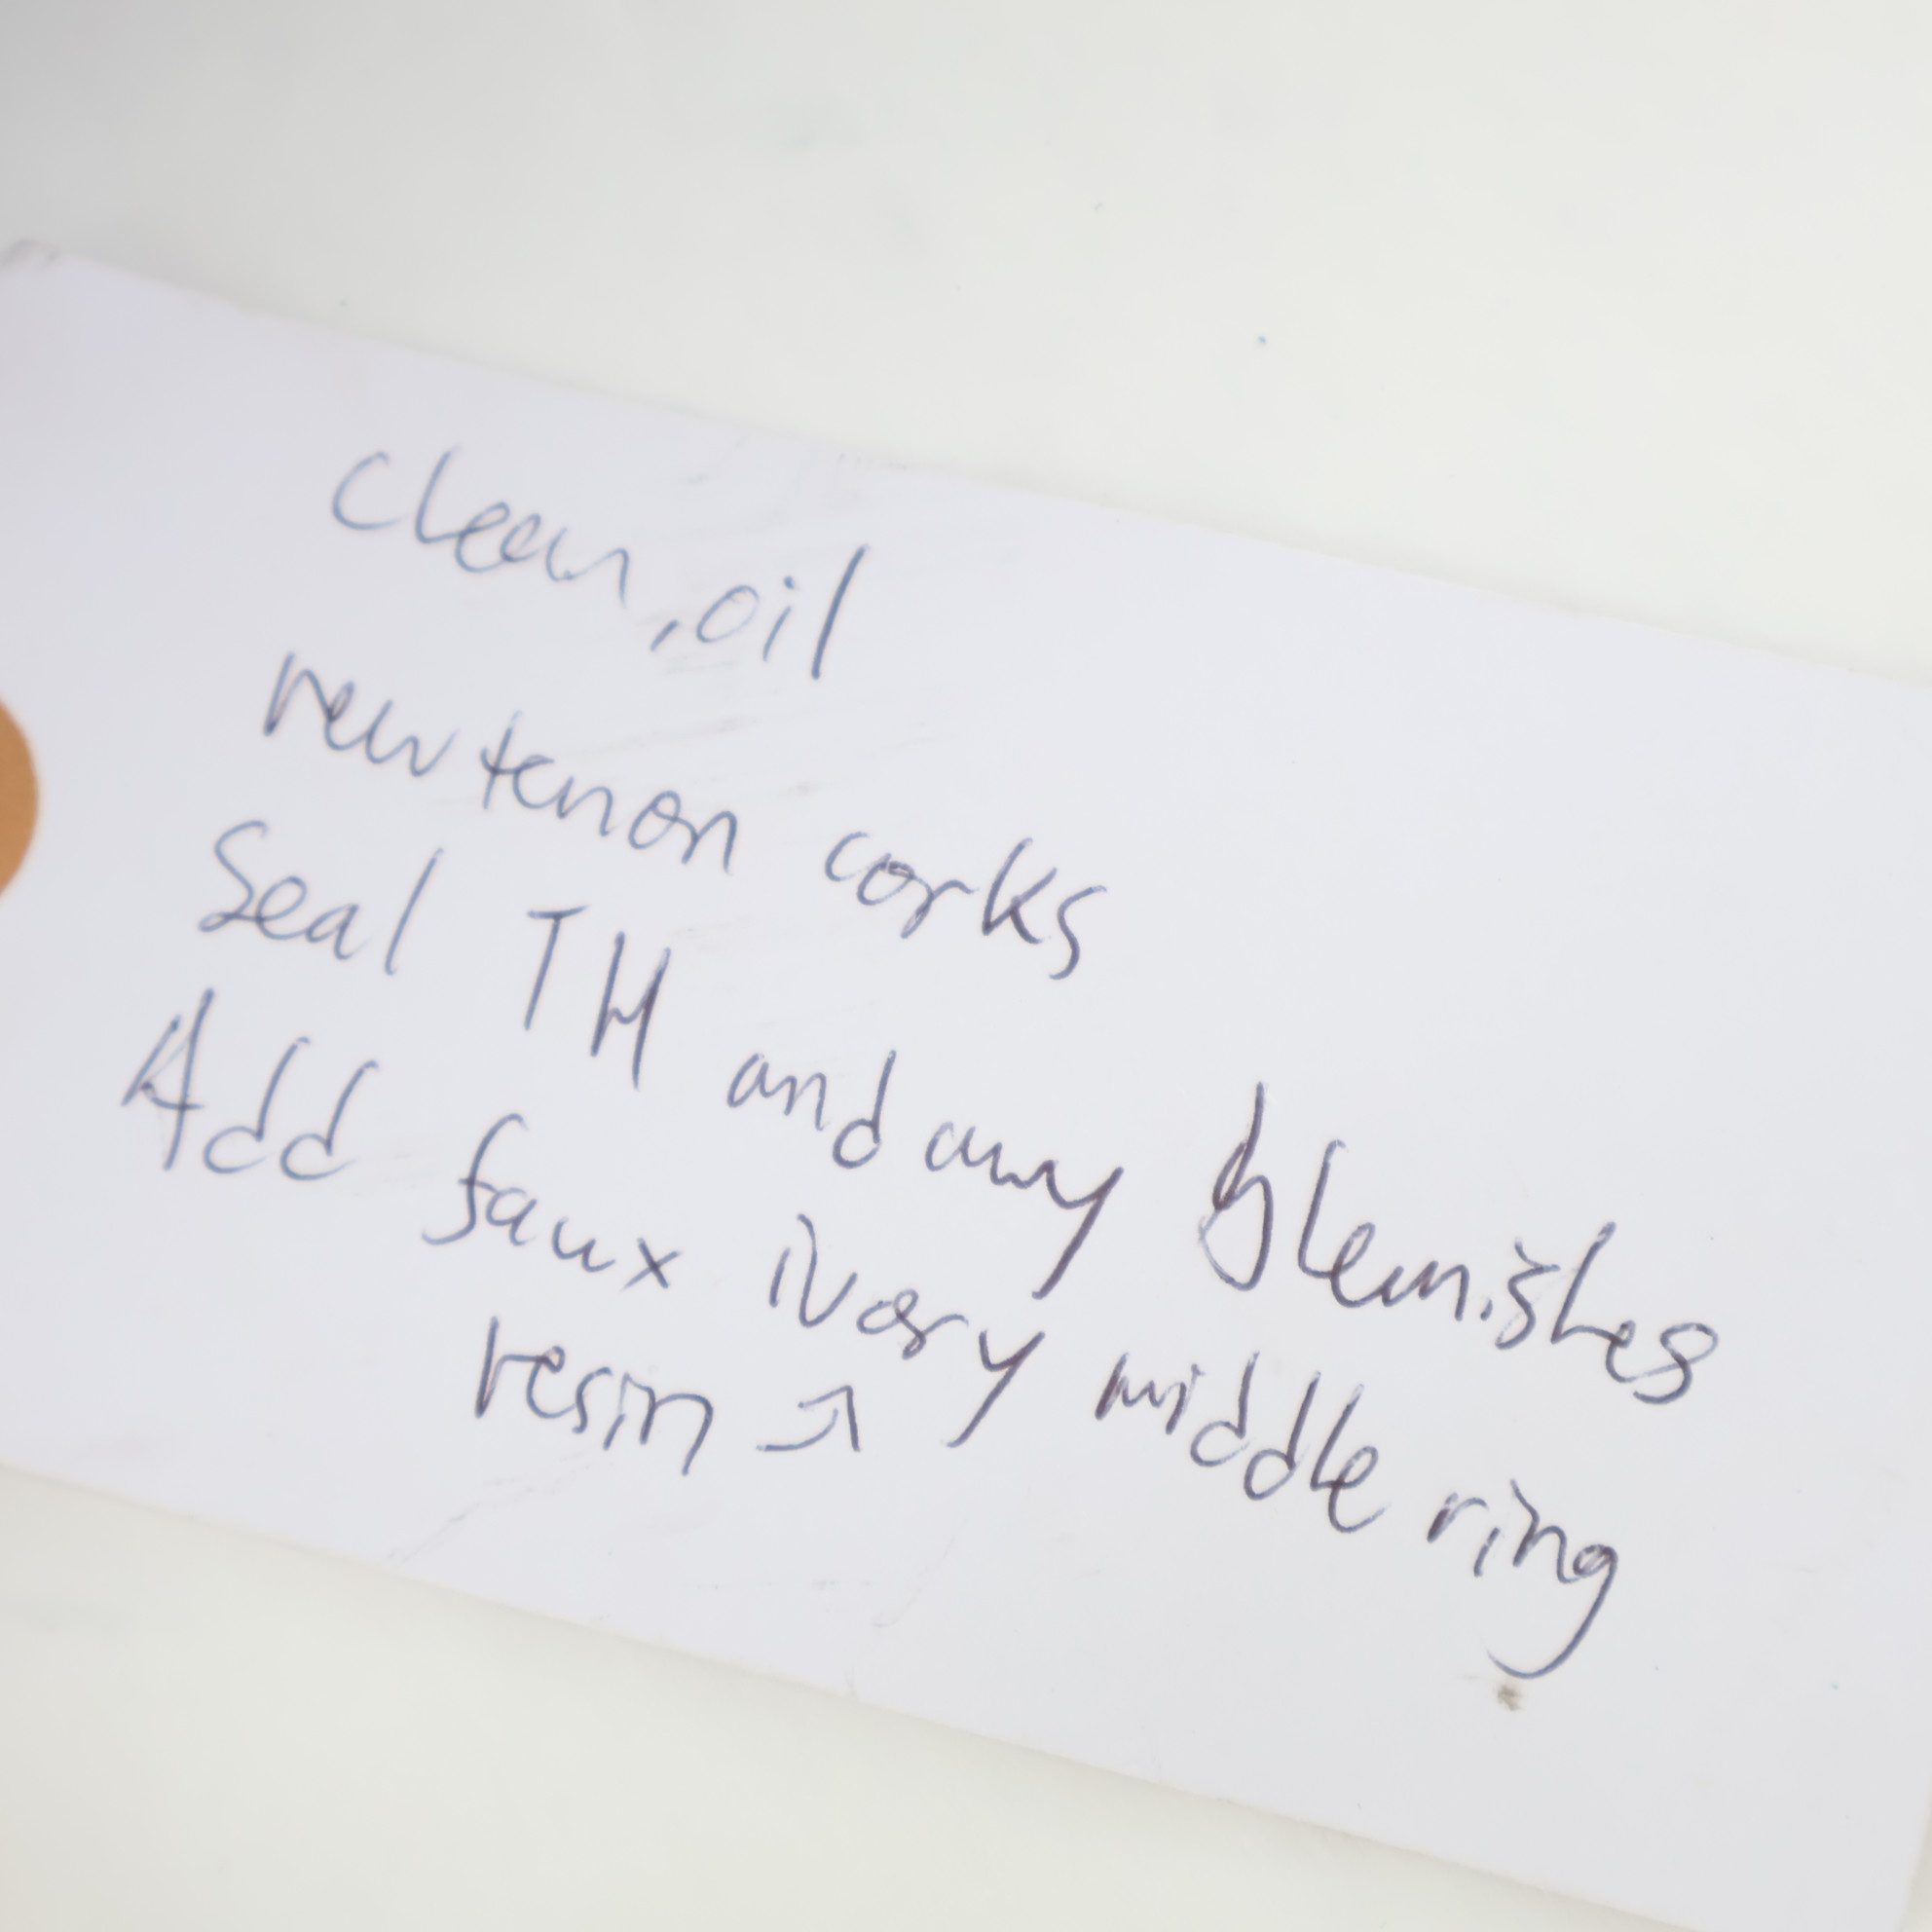 Clean, oil
new tenon corks
Seal TH and any blemishes
Add faux ivory middle ring
resin ↗